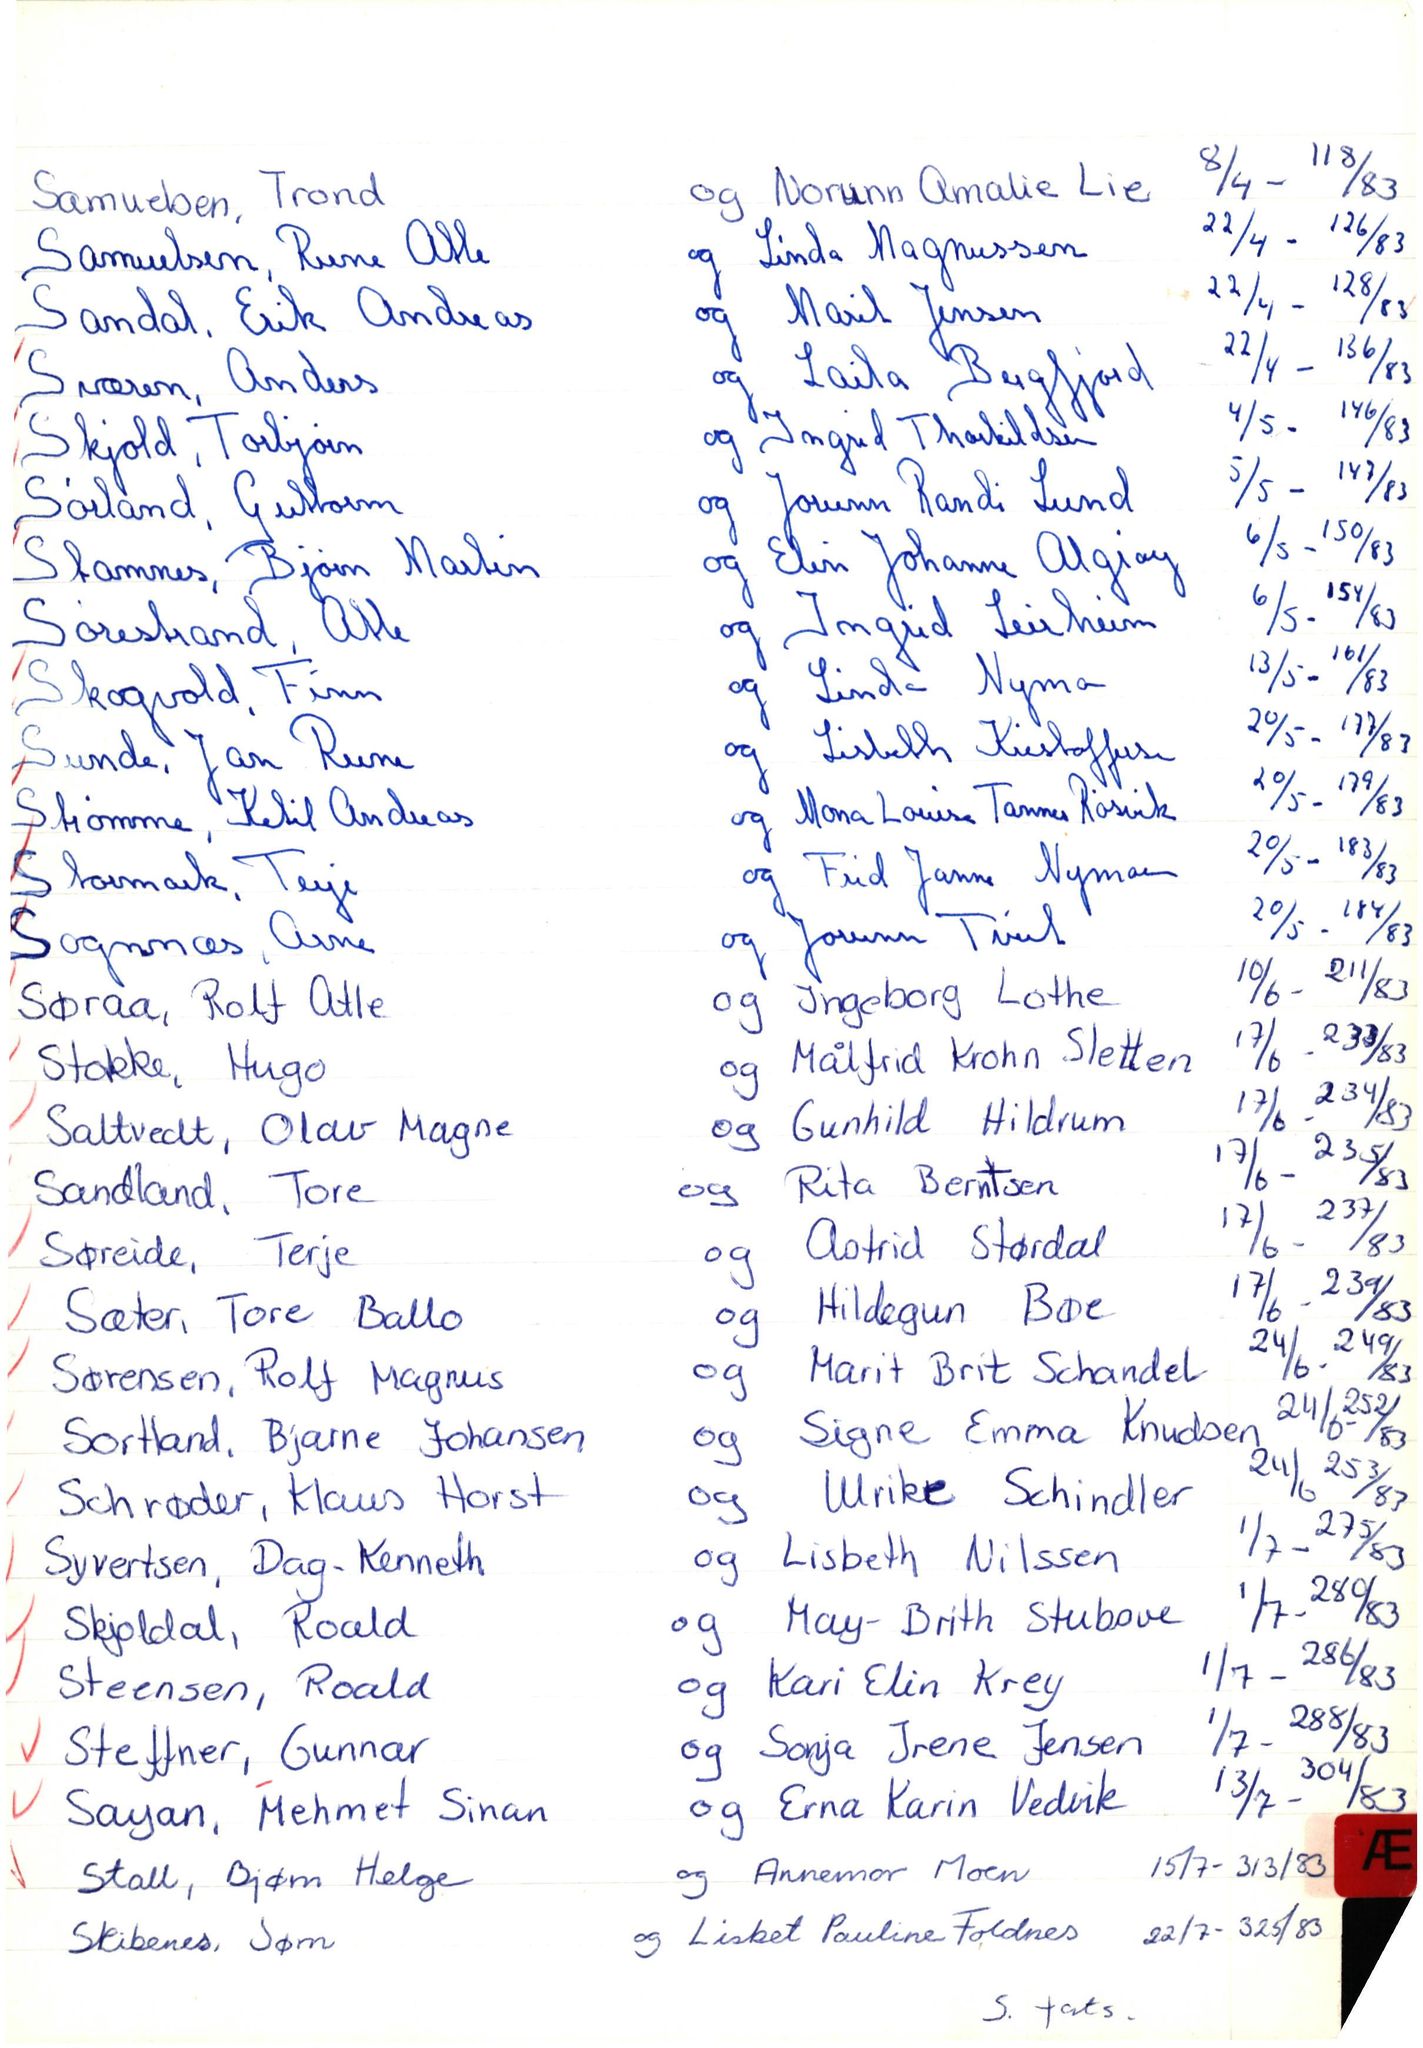 Samuelsen, Trond og Norunn Amalie Lie 8/4 - 118/83
Samuelsen, Rune Atle og Linda Magnussen 22/4 - 126/83
Sandal, Erik Andreas og Marit Jensen 22/4 - 128/83
Sværen, Anders og Laila Bergfjord 22/4 - 136/83
Skjold, Torbjørn og Ingrid Thorkildsen 4/5 - 146/83
Sørland, Guttorm og Jorunn Randi Lund 5/5 - 147/83
Stamnes, Bjørn Martin og Elin Johanne Algrøy 6/5 - 150/83
Sørestrand, Atle og Ingrid Leirheim 6/5 - 154/83
Skogvold, Finn og Linda Nyman 13/5 - 161/83
Sunde, Jan Rune og Lisbeth Kristoffersen 20/5 - 177/83
Strømme, Ketil Andreas og Mona Louise Tannes Røsvik 20/5 - 179/83
Stormark, Terje og Frid Janne Nyman 20/5 - 183/83
Sognnæs, Arne og Jorunn Tveit 20/5 - 184/83
Søraa, Rolf Atle og Ingeborg Lothe 10/6 - 211/83
Stokke, Hugo og Målfrid Krohn Sletten 17/6 - 233/83
Saltvedt, Olav Magne og Gunhild Hildrum 17/6 - 234/83
Sandland, Tore og Rita Berntsen 17/6 - 235/83
Søreide, Terje og Astrid Størdal 17/6 - 237/83
Sæter, Tore Ballo og Hildegun Bøe 17/6 - 239/83
Sørensen, Rolf Magnus og Marit Brit Schandel 24/6 - 249/83
Sortland, Bjarne Johansen og Signe Emma Knudsen 24/6 - 252/83
Schrøder, Klaus Horst og Ulrike Schindler 24/6 253/83
Syvertsen, Dag-Kenneth og Lisbeth Nilssen 1/7 - 275/83
Skjoldal, Roald og May-Brith Stubøve 1/7 - 280/83
Steensen, Roald og Kari Elin Krey 1/7 - 286/83
Steffner, Gunnar og Sonja Irene Jensen 1/7 - 288/83
Sayan, Mehmet Sinan og Erna Karin Vedvik 13/7 - 304/83
Stall, Bjørn Helge og Annemor Moen 15/7 - 313/83 Æ
Skibenes, Jørn og Lisbet Pauline Foldnes 22/7 - 325/83
S. forts.